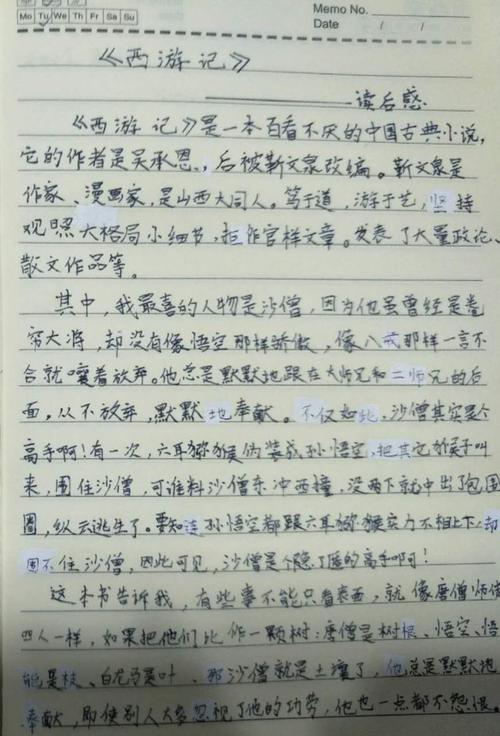 Memo No.
Mo Tu We Th Fr Sa Su
Date / /
《西游记》
——读后感
《西游记》是一本百看不厌的中国古典小说,
它的作者是吴承恩,后被靳文泉改编。靳文泉是
作家、漫画家,是山西大同人。笃于道,游于艺,坚持
观照大格局小细节,拒作官样文章。发表了大量政论、
散文作品等。
其中,我最喜的人物是沙僧,因为他虽曾经是卷
帘大将,却没有像悟空那样骄傲,像八戒那样一言不
合就嚷着放弃。他总是默默地跟在大师兄和二师兄的后
面,从不放弃,默默地奉献。不仅如此,沙僧其实是个
高手啊!有一次,六耳猕猴伪装成孙悟空,把其它猴子叫
来,围住沙僧,可谁料沙僧东冲西撞,没两下就冲出了包围
圈,纵云逃生了。要知连孙悟空都跟六耳猕猴实力不相上下,却
围不住沙僧,因此可见,沙僧是个隐了匿的高手啊!
这本书告诉我,有些事不能只看表面,就像唐僧师徒
四人一样,如果把他们比作一颗树:唐僧是树根、悟空、悟
能是枝、白龙马是叶、那沙僧就是土壤了,他总是默默地
奉献,即使别人大多忽视了他的功劳,他也一点都不怨恨。